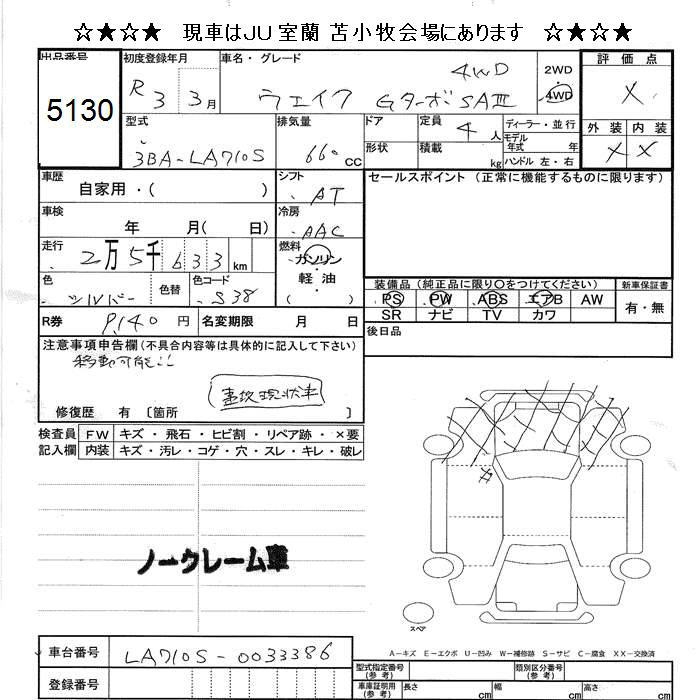 ☆★☆★ 現車はJU室蘭 苫小牧会場にあります ☆★☆★
出品番号 初度登録年月 車名・グレード 評価点
5130 R3 3月 ウェイク GターボSAⅢ 4WD 2WD 4WD X
型式 排気量 ドア 定員 4人 ディーラー・並行 外装 内装
モデル年式 年
3BA-LA710S 660cc 形状 積載 kg ハンドル 左・右 X X
車歴 シフト セールスポイント (正常に機能するものに限ります)
自家用・( ) AT
車検 冷房
年 月( 日) AAC
走行 2万5千633km 燃料 ガソリン・軽油 ( )
色 色替 色コード 装備品 (純正品に限り○をつけてください) 新車保証書
シルバー S38 PS PW ABS エアB AW 有・無
SR ナビ TV カワ
R券 9,140円 名変期限 月 日 後日品
注意事項申告欄 (不具合内容等は具体的に記入して下さい)
移動可能!!
事故現状車
修復歴 有 〔箇所 〕
検査員 FW キズ・飛石・ヒビ割・リペア跡・×要
記入欄 内装 キズ・汚レ・コゲ・穴・スレ・キレ・破レ
ノークレーム車
スペア
A-キズ E-エクボ U-凹み W-補修跡 S-サビ C-腐食 XX-交換済
車台番号 LA710S-0033386
型式指定番号(参考) 類別区分番号(参考)
登録番号 車庫証明用(参考) 長さ cm 幅 cm 高さ cm